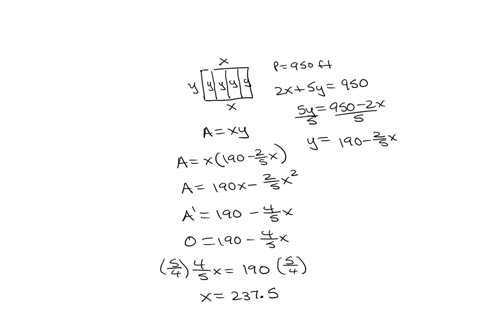 x
y y y y y
x
P=950 ft
2x+5y=950
5y/5 = 950-2x/5
y= 190-2/5x
A=xy
A= x(190-2/5x)
A= 190x-2/5x²
A'= 190 -4/5x
0=190-4/5x
(5/4)4/5x= 190(5/4)
x= 237.5